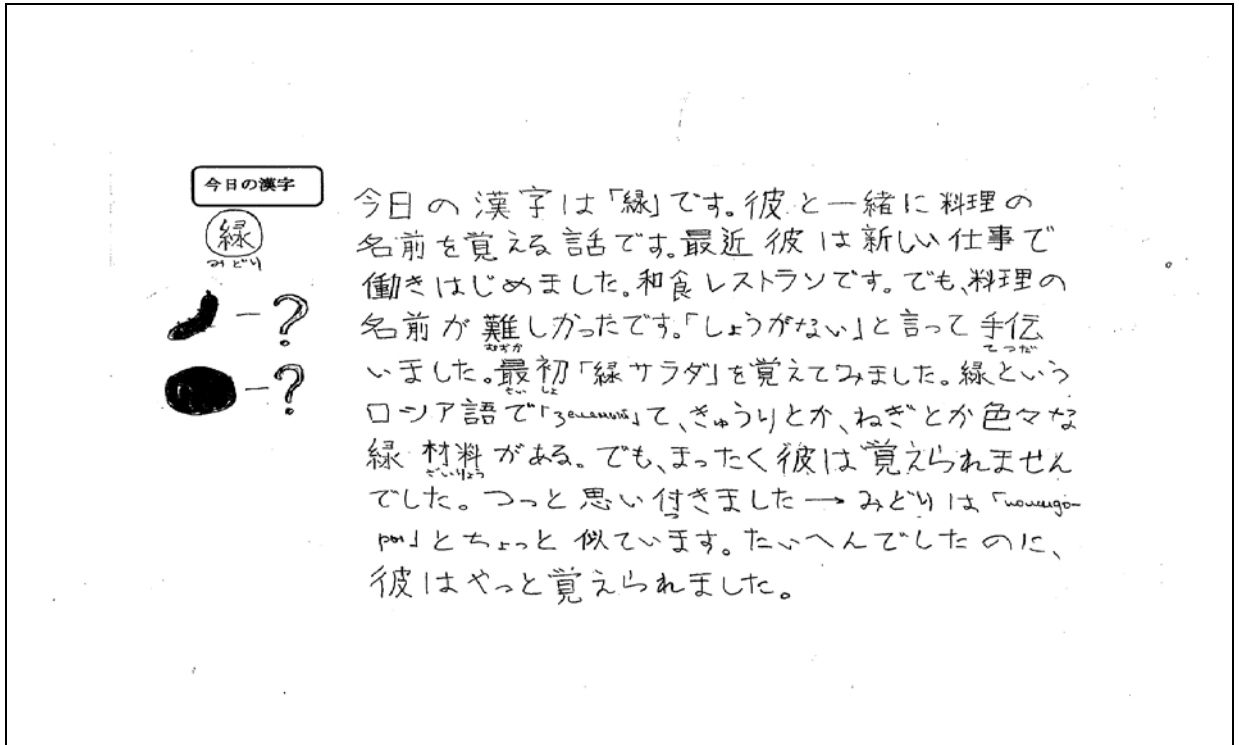 今日の漢字
緑
みどり
?
?
今日の漢字は「緑」です。彼と一緒に料理の
名前を覚える話です。最近彼は新しい仕事で
働きはじめました。和食レストランです。でも、料理の
名前が難しかったです。「しょうがない」と言って手伝
むずか
てつだ
いました。最初「緑サラダ」を覚えてみました。緑という
さいしょ
ロシア語で「зеленый」て、きゅうりとか、ねぎとか色々な
緑材料がある。でも、まったく彼は覚えられません
ざいりょう
でした。つっと思い付きました→みどりは「помидо-
つ
ры」とちょっと似ています。たいへんでしたのに、
彼はやっと覚えられました。